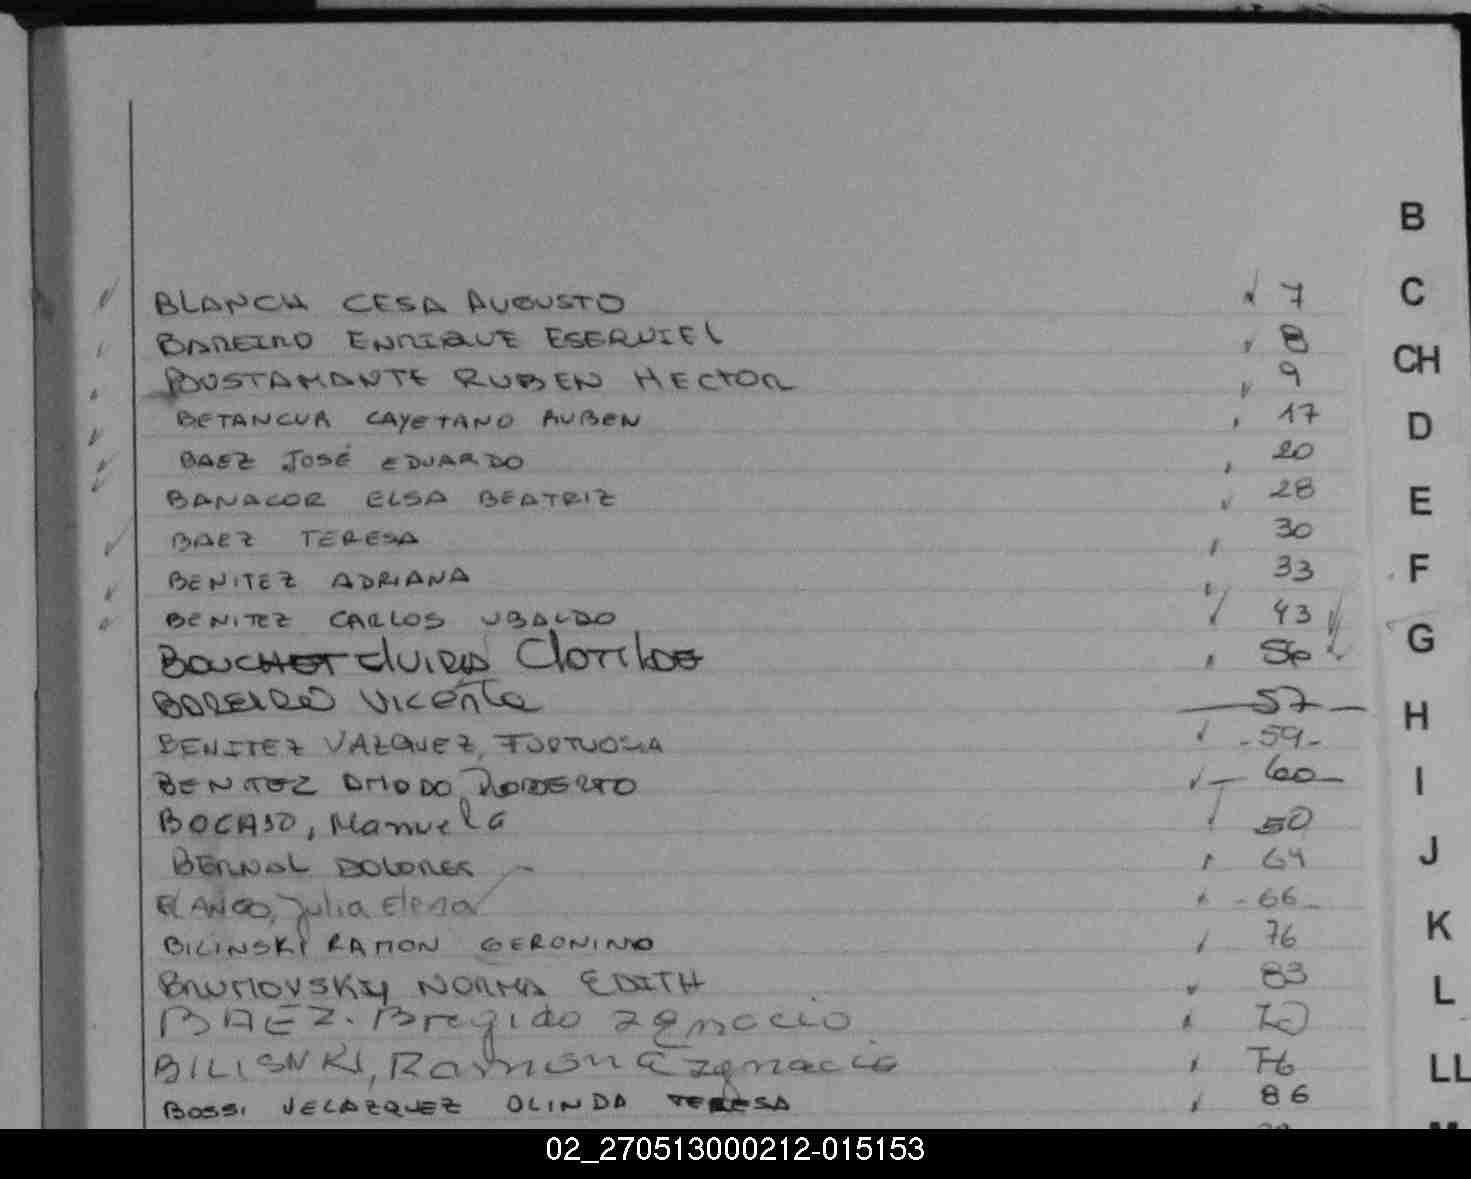 B
C
CH
D
E
F
G
H
I
J
K
L
LL
BLANCH CESA AUGUSTO 7
BAREIRO ENRIQUE ESEQUIEL 8
BUSTAMANTE RUBEN HECTOR 9
BETANCUR CAYETANO RUBEN 17
BAEZ JOSÉ EDUARDO 20
BANACOR ELSA BEATRIZ 28
BAEZ TERESA 30
BENITEZ ADRIANA 33
BENITEZ CARLOS UBALDO 43
BOUCHET ELVIRA Clotilde 56
BAREIRO Vicente 57
BENITEZ VAZQUEZ, -59-
BENITEZ ROBERTO 60
BOCASO, Manuela 50
BERNAL DOLORES 64
BLANCO, Julia Elena -66-
BILINSKI RAMON GERONIMO 76
BRUMOVSKY NORMA EDITH 83
BAEZ. Bregido Zgnacio
BILISNKI, Ramon Zgnacio 76
BOSSI VELAZQUEZ OLINDA TERESA 86
02_270513000212-015153